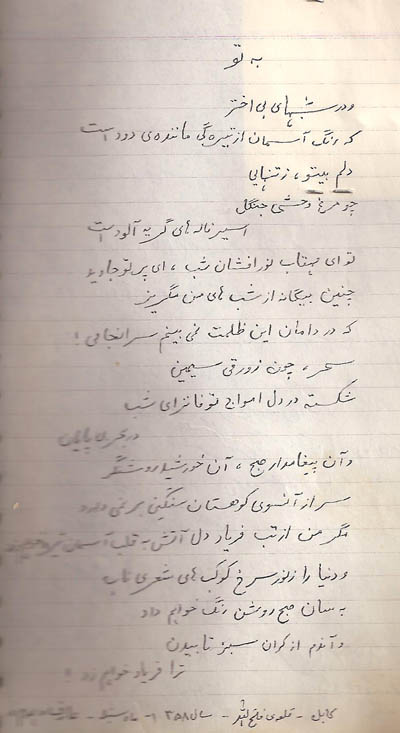 به تو
و در شبهای بی اختر
که رنگ آسمان از تیره گی ماننده ی دود است
دلم بیتو، ز تنهایی
چو مرغ وحشی جنگل
اسیر ناله های گریه آلود است
تو ای مهتاب نور افشان شب، ای پرتو جاوید
چنین بیگانه از شب های من مگریز
که در دامان این ظلمت نمی بینم سرانجامی!
سحر، چون زورقی سیمین
شکسته در دل امواج توفانزای شب
در بحر بی پایان
و آن پیغامدار صبح، آن خورشید روشنگر
سر از آنسوی کوهستان سنگین بر نمی دارد
مگر من از تب فریاد دل آتش به قلب آسمان تیره
و دنیا را ز نور سرخ کوکب های شعری ناب
به سان صبح روشن رنگ خواهم داد
و آندم از کران سبز تابیدن
ترا فریاد خواهم زد!
کابل - قلعه ی فتح الله - سال ۱۳۵۸ - ماه سنبله -